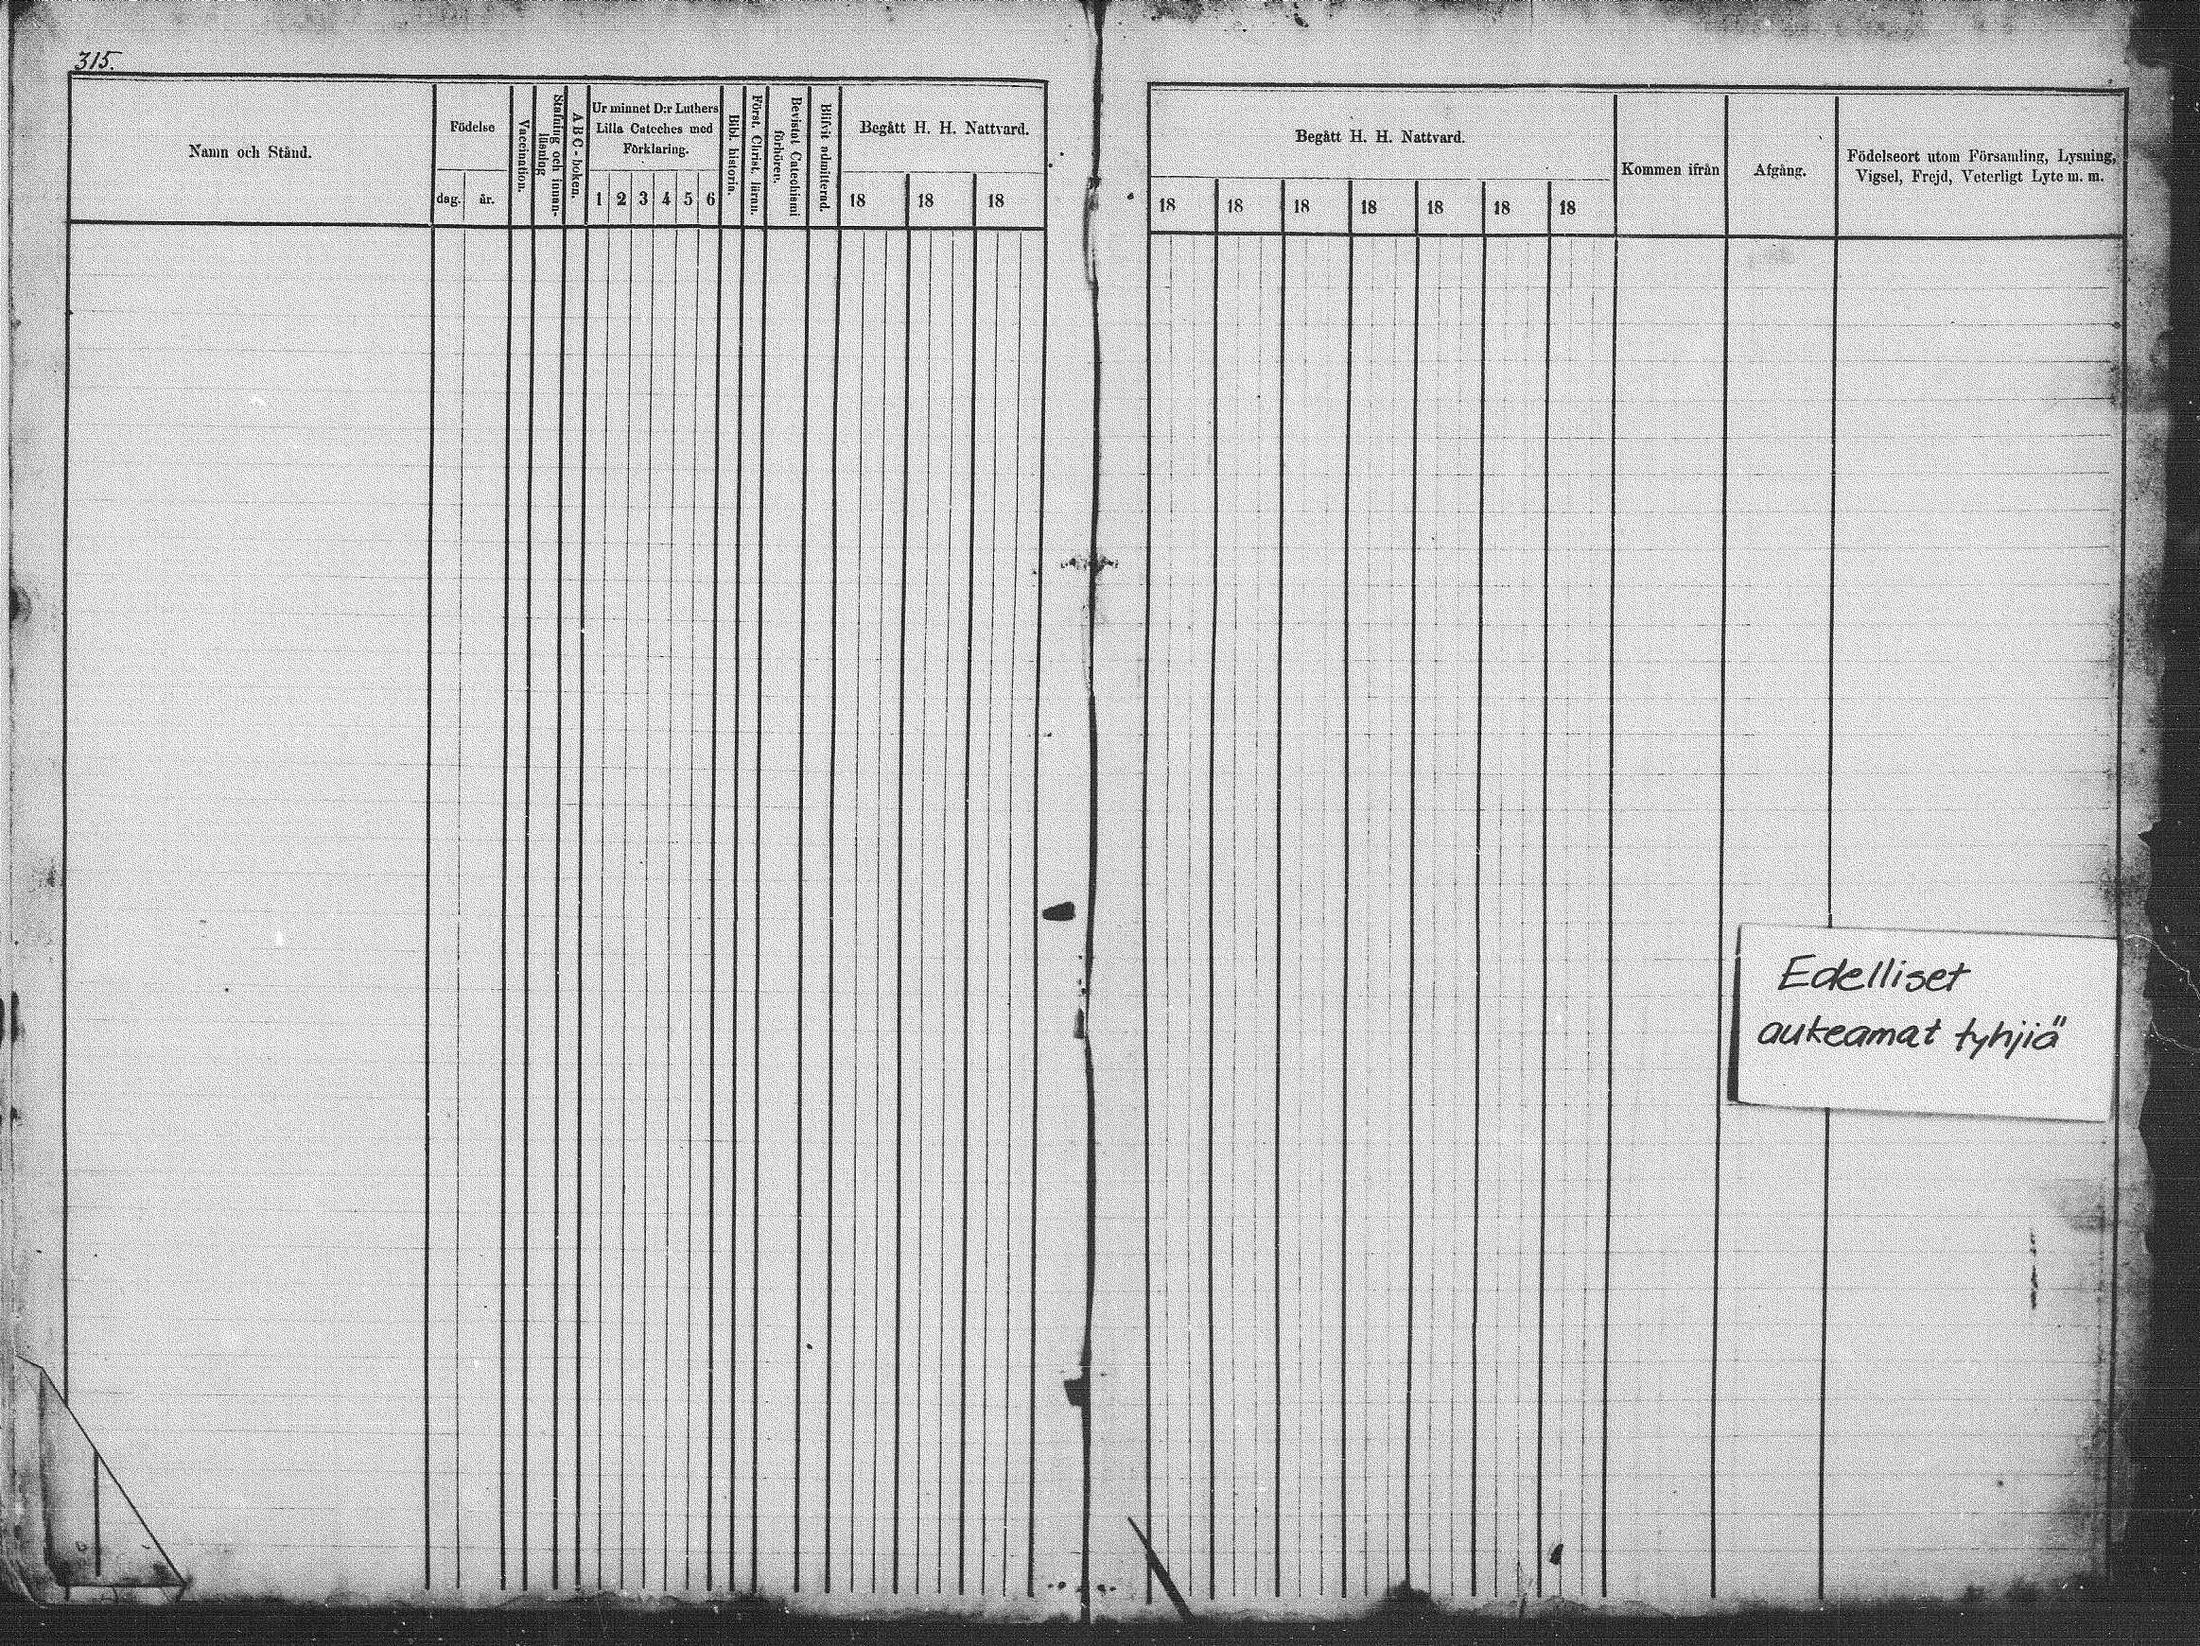 315.
Namn och Stånd.
Födelse
dag.
år.
Vaccination.
Stafning och innan-
läsning
A B C - boken.
Ur minnet D:r Luthers
Lilla Cateches med
Förklaring.
1 2 3 4 5 6
Bibl. historia.
Först. Christ. läran.
Bevistat Catechismi
förhören.
Blifvit admitterad.
Begått H. H. Nattvard.
18 18 18
Begått H. H. Nattvard.
18 18 18 18 18 18 18
Kommen ifrån
Afgång.
Födelseort utom Församling, Lysning,
Vigsel, Frejd, Veterligt Lyte m. m.
Edelliset
aukeamat tyhjiä